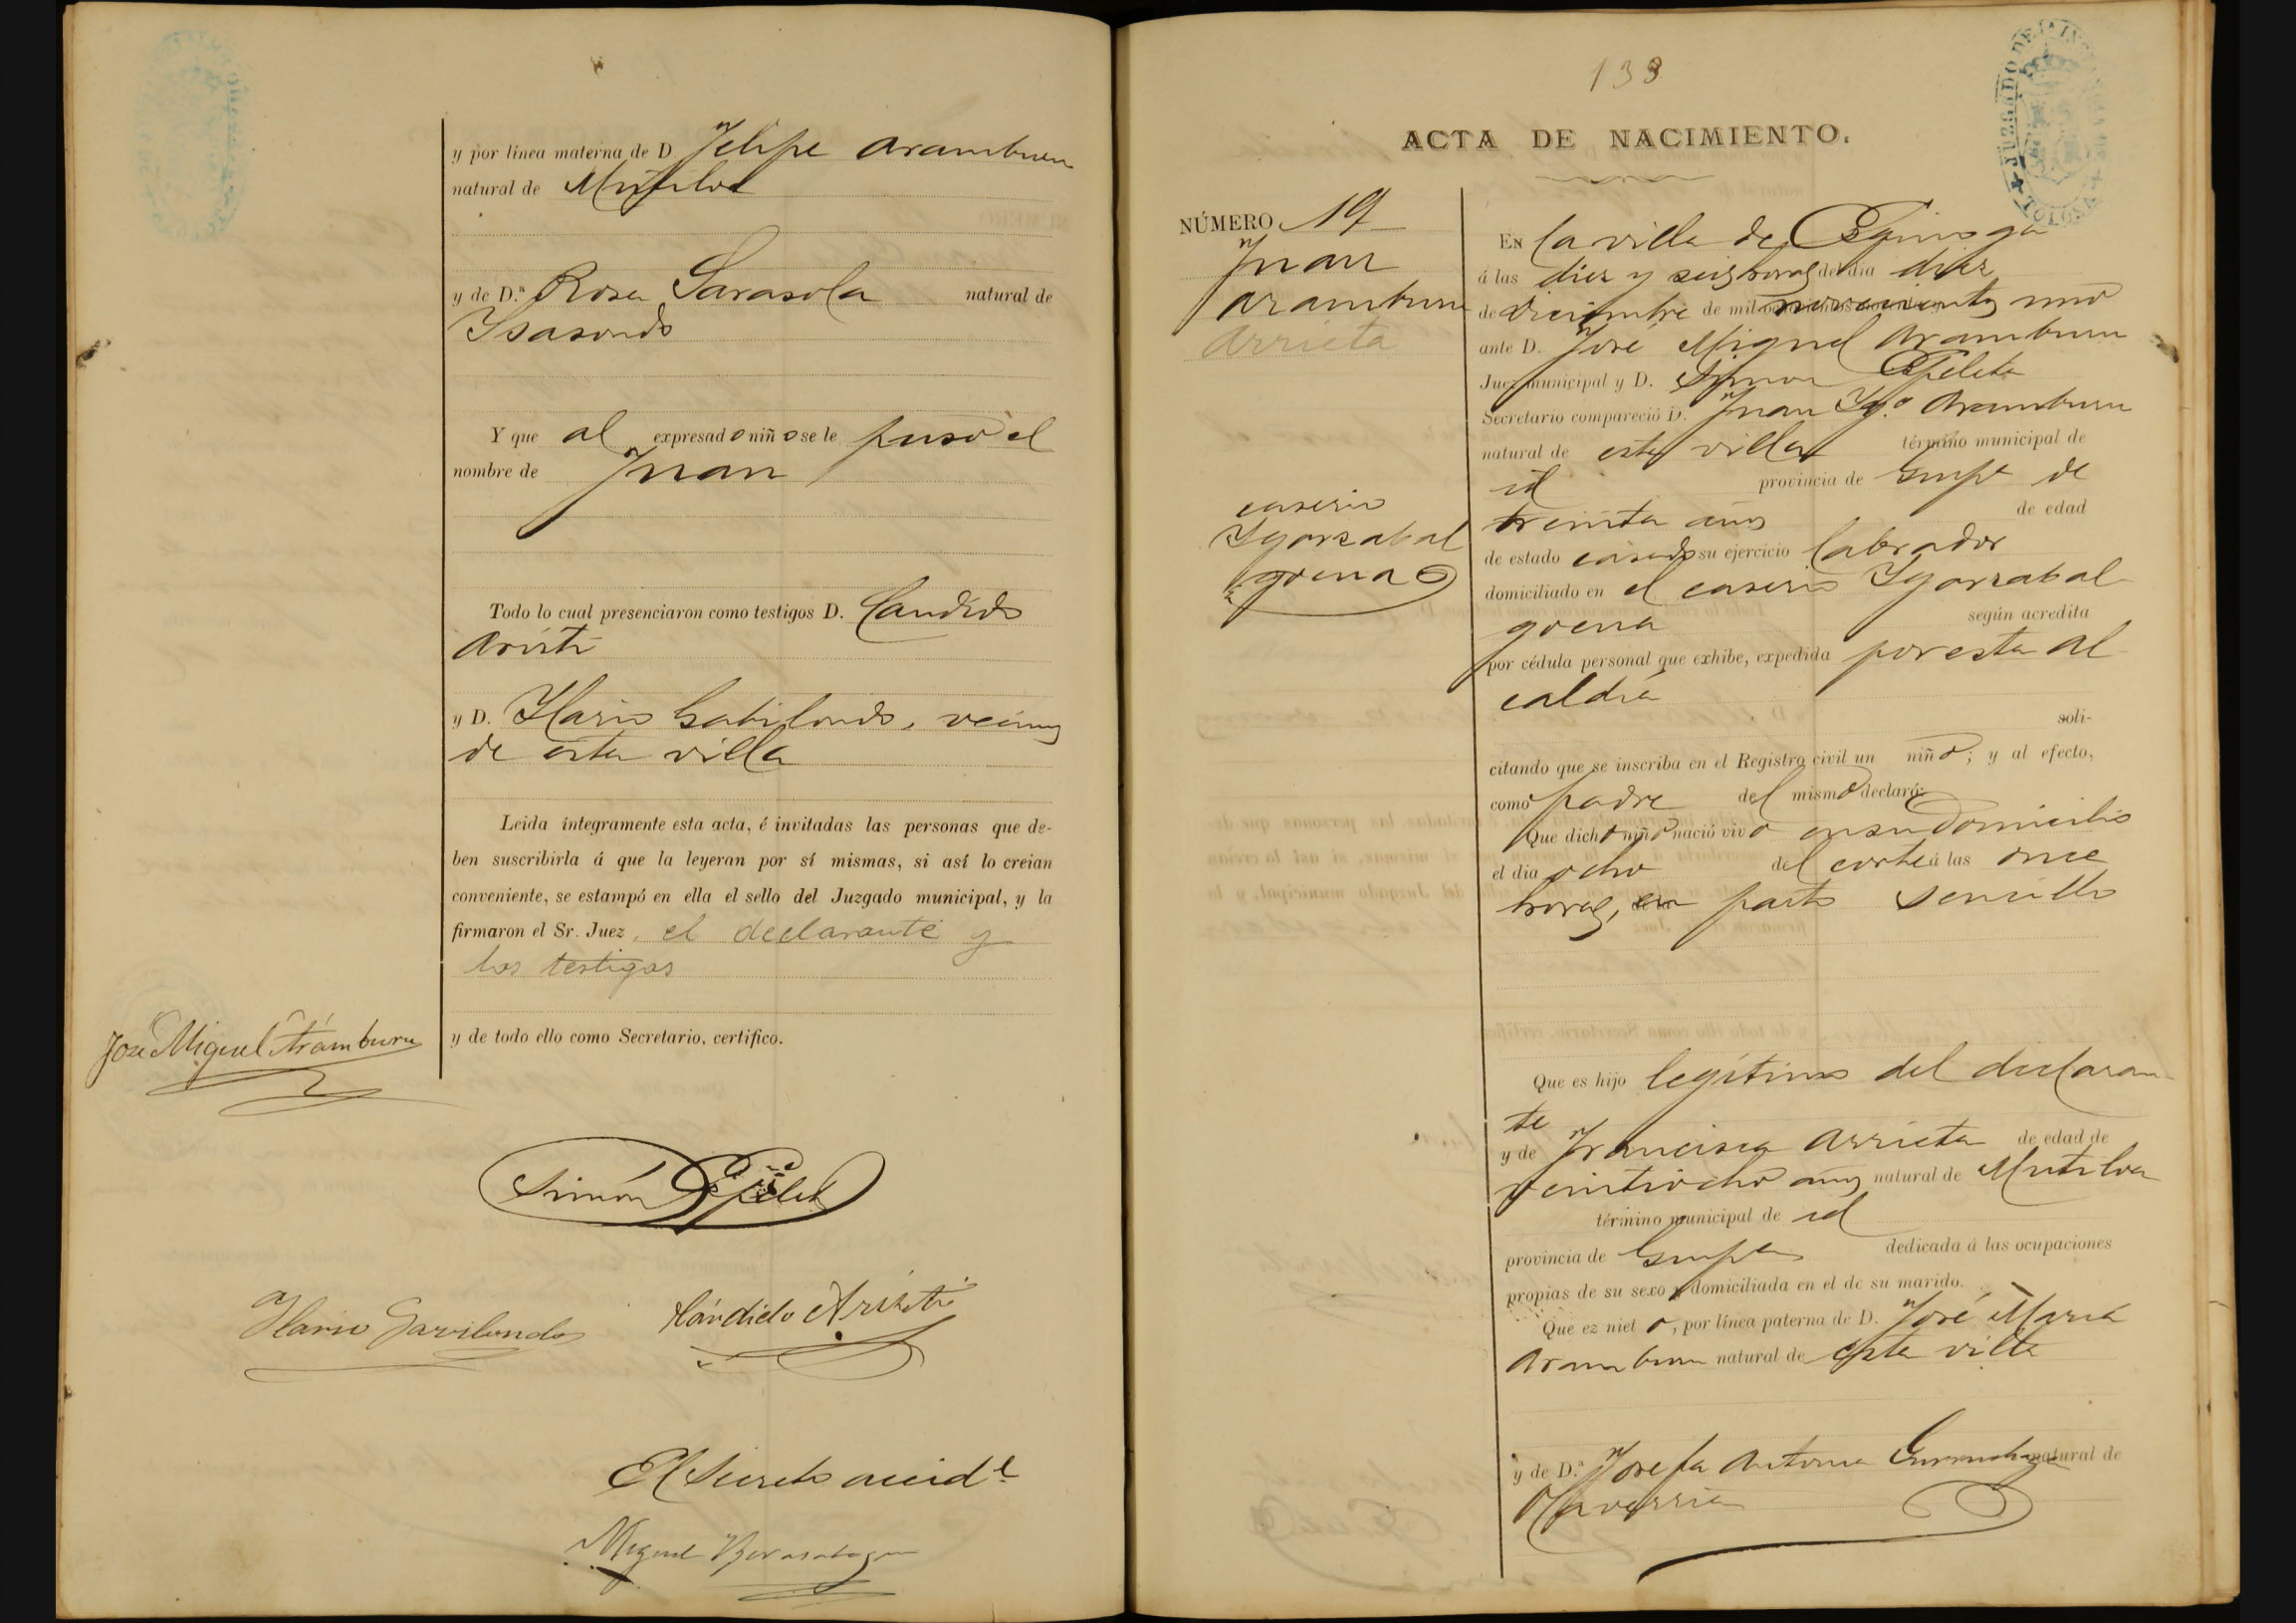 y por línea materna de D Felipe Aramburu
natural de Mutiloa
y de D.ª Rosa Sarasola natural de
Ysasondo
Y que al expresado niño se le puso el
nombre de Juan
Todo lo cual presenciaron como testigos D. Candido
Aristi
y D. Ylario Gabilondo, vecinos
de esta villa
Leida íntegramente esta acta, é invitadas las personas que de-
ben suscribirla á que la leyeran por sí mismas, si así lo creian
conveniente, se estampó en ella el sello del Juzgado municipal, y la
firmaron el Sr. Juez, el declarante y
los testigos
y de todo ello como Secretario, certifico.
José Miguel Aramburu
Simón
Ylario Gavilondo Cándido Aristi
El Secreto accid.l
Miguel
133
ACTA DE NACIMIENTO.
JUZGADO DE TOLOSA
NÚMERO 19
Juan
Aramburu
Arrieta
caserio
Ygarzabal
goena
En la villa de
á las diez y seis horas del dia diez
de diciembre de mil novecientos uno
ante D. José Miguel Aramburu
Juez municipal y D. Simon
Secretario compareció D. Juan Yg.o Aramburu
natural de esta villa término municipal de
id provincia de Guipa de
treinta años de edad
de estado casado su ejercicio labrador
domiciliado en el caserio Ygarzabal
goena según acredita
por cédula personal que exhibe, expedida por esta al
caldía
soli-
citando que se inscriba en el Registro civil un niño; y al efecto,
como padre del mismo declaró:
Que dicho niño nació vivo en su domicilio
el dia ocho del corrte á las once
horas, en parto sencillo
Que es hijo legítimo del declaran
te
y de Francisca Arrieta de edad de
veintiocho años natural de Mutiloa
término municipal de id
provincia de Guipa dedicada á las ocupaciones
propias de su sexo y domiciliada en el de su marido.
Que ez nieto, por línea paterna de D. José Maria
Aramburu natural de esta villa
y de D.ª Josefa Antonia Gurruchaga natural de
Olaverria